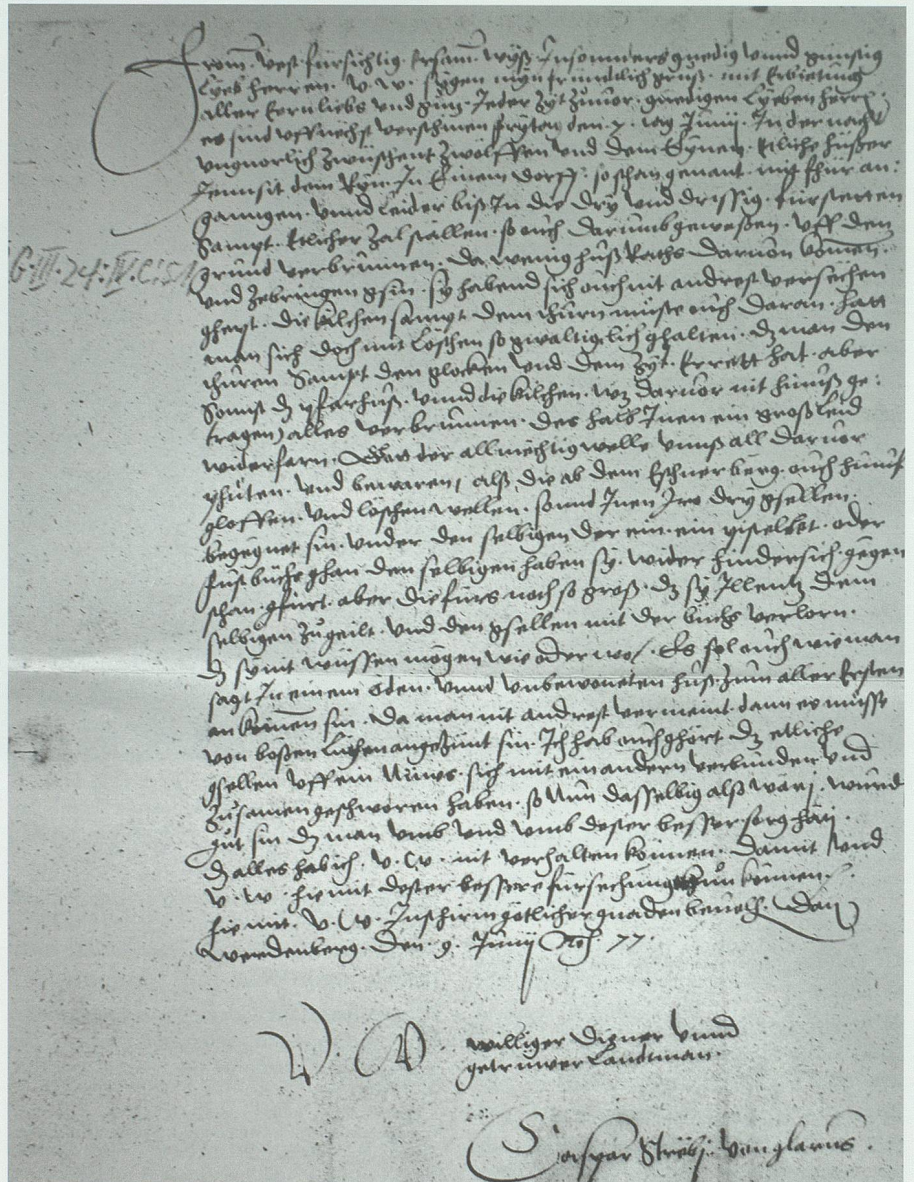 From̅. Vest. fürsichtig. Ersam̅. wyß. Insonders gnedig vnnd günstig
Lyeb herren. V. W. sygen myn fruindtlich gruß. mit Erbietung
aller Eern liebs vnd guz. Jeder Zyt zuuor. gnedigen Lyeben herrn
es sind vff nechst verschinen frytag den 7. tag Junij. In der nacht
vnguorlich Zwüschent Zwölffen vnd dem Eynen. Ettliche hüßer
Jennsit dem Ryn. In Einem dorff. so schan genant. mit fhür an:
gangen. vnnd leider biß In die dry vnd drissig. fürstetten
Sampt. Ettlicher Zal ställen. so ouch darumb geweßen. vff den
grund verbrunnen. da wenig huß Raths daruon komen.
G. III. 24. IV. Cl.
vnd Zebringen gsin. sy habend sich ouch nit andrest versechen
ghept. die kilchen sampt dem thurn müste ouch daran. hatt
man sich doch mit Löschen so gwaltigclich ghalten. dz man den
thuren Sampt den glocken vnd dem Zyt. Errett hat. aber
Sonst dz pfarhuß. vnnd die kilchen. wz daruor nit hinuß ge:
tragen) alles verbrunnen. des halb Inen ein groß Leid
widerfarn. Gott der allmechtig welle vnnß all daruor
phüten. vnd bewaren, alß die ab dem Eschnerberg. ouch hinuf
gloffen. vnd löschen wellen. sennd Inen Iro dry gsellen.
begegnet sin. vnder den selbigen der ein. ein. oder
fust büchs ghan den selbigen haben sy. wider hindersich gegen
schan. gfürt. aber die fürs noch so groß. dz sy Illentz dem
selbigen Zugeilt. vnd den gsellen mit der büchs verlorn.
dz sy nit wüssen mögen wie oder wo/. Es sol ouch wie man
sagt In einem öden. vnnd vnbewoneten huß. Zum aller Ersten
an komen sin. da man nit andrest vermeint. dann es müsse
von boßen Lüthen angezünt sin. Ich hab ouch ghört dz etliche
gsellen vff ein Nüws. sich mit einandern verbunden vnd
Zusamen geschworen haben. so Nun dasselbig alß wäri. wurd
gut sin dz man vmb vnd vmb dester besser sorg häti.
dz alles hab ich. V. W. nit verhalten können. damit vnd
V. W. hie mit dester bessere fürsechung thun können.
hie mit. V. W. In schirm götlicher gnaden beuolh. Datt
Werdenberg. den. 9. Junij Anno 77.
V. W. williger diener vnnd
getruwer Landtman.
Caspar Strübj. von glarus.